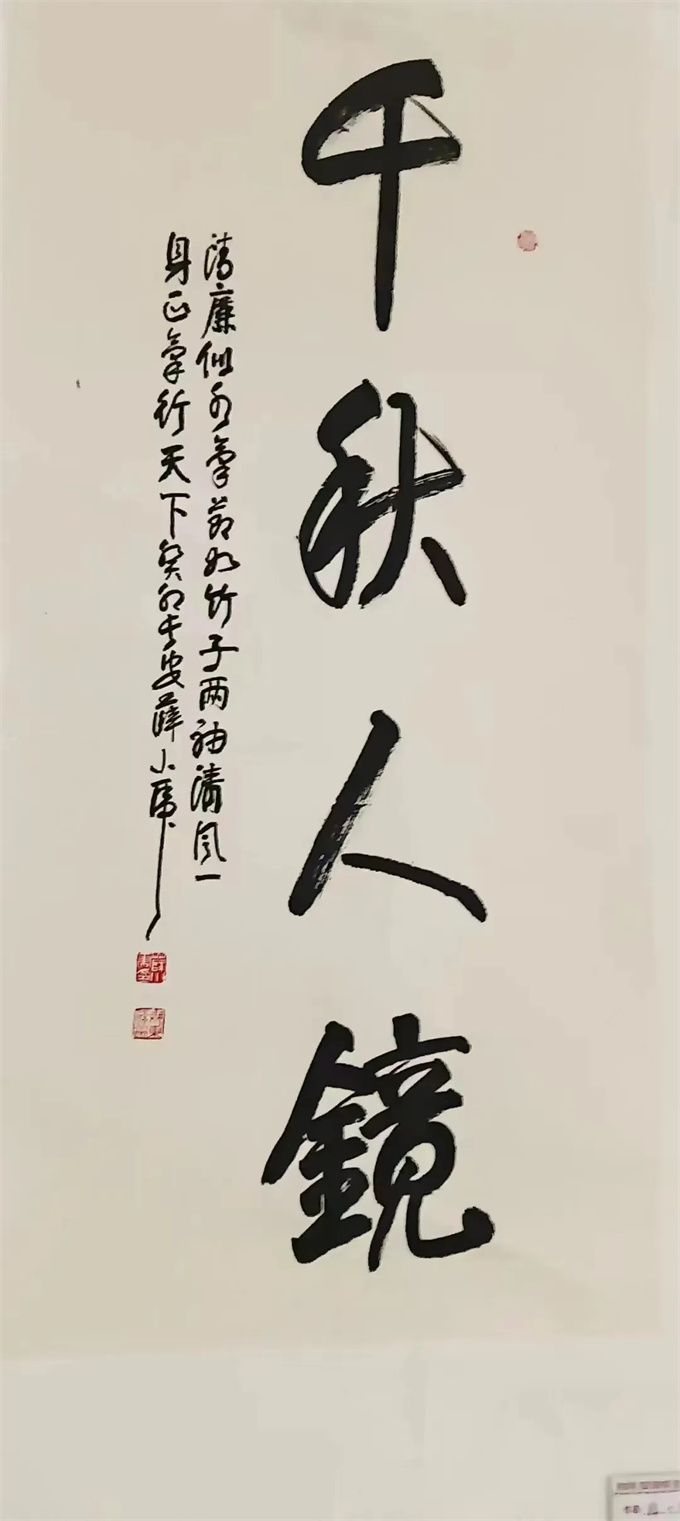 千秋人鏡
清廉似水氣節如竹子两袖清風一
身正氣行天下癸卯長安薛小虎